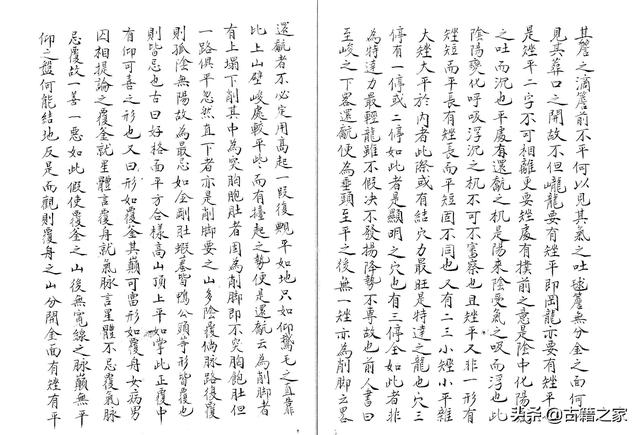 其簷之滴簷前不平何以見其氣之吐毬簷無分金之面何
見其葬口之開故不但巄龍要有㘸平即岡龍亦要有㘸平
是㘸平二字不可相離更要㘸處有撲前之意是陰中化陽
之吐而沉也平處有還瓻之机是陽來陰受氣之吸而浮也此
陰陽變化呼吸浮沉之机不可不審察也且㘸平又非一形有
㘸短而平長有㘸長而平短固不同也又有二三小㘸小平雖
大㘸大平於內者此際或有結穴力最旺是特達之龍也穴三
停有一停或二停如此者是顯明之穴也有三停全如此者非
為特達力最輕龍雖不假决不發揚降勢不專故也前人書曰
至峻之下畧還瓻便為垂頭至平之後無一㘸亦為削脚之畧
還瓻者不必定用高起一叚後飄平如地只如仰鵞毛之直靠
比上山壁峻處較平些而有擡起之勢便是還瓻云為削脚者
有上塌下削其中為突胸胞肚者固為削脚即不突胸飽肚但
一路俱平忽然直下者亦是削脚要之山多陰覆倘脉路復覆
則孤陰無陽故為最忌如金剛肚蝦蟇背鴨公頭等形皆覆也
則皆忌也古曰好格面平方合樣高山頂上平如掌此正覆中
有仰可喜之形也又曰形如覆釜其巔可富形如覆舟女病男
囚相提論之覆釜就星體言覆舟就氣脉言星體不忌覆氣脉
忌覆故一善一惡如此假使覆釜之山後無電線之脉巔無平
仰之盤何能結地反是而觀則覆舟之山分開金面有㘸有平
头条 @古籍之家